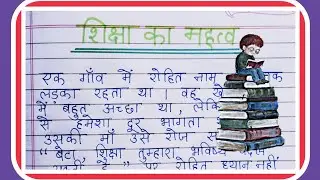 शिक्षा का महत्व
एक गाँव में रोहित नाम
लड़का रहता था । वह खे
में बहुत अच्छा था , लेकि
से हमेशा दूर भागता
उसकी माँ उसे रोज स
" बेटा, शिक्षा तुम्हारा भविष्य
पर रोहित ध्यान नहीं